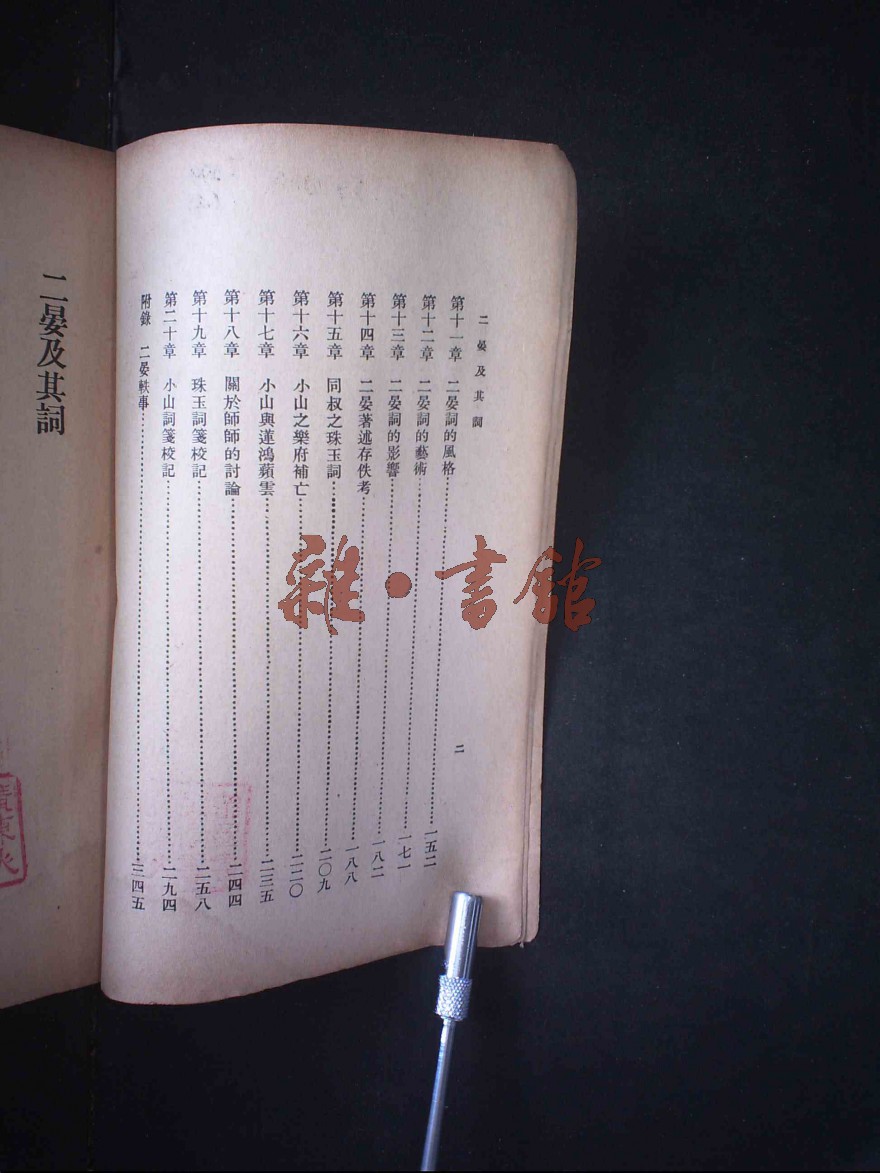 二晏及其詞
第十一章 二晏詞的風格……一五二
第十二章 二晏詞的藝術……一七一
第十三章 二晏詞的影響……一八二
第十四章 二晏著述存佚考……一八八
第十五章 同叔之珠玉詞……二〇九
第十六章 小山之樂府補亡……二二〇
第十七章 小山與蓮鴻蘋雲……二三五
第十八章 關於師師的討論……二四四
第十九章 珠玉詞箋校記……二五八
第二十章 小山詞箋校記……二九四
附錄 二晏軼事……三四五
二
二晏及其詞
雜·書館